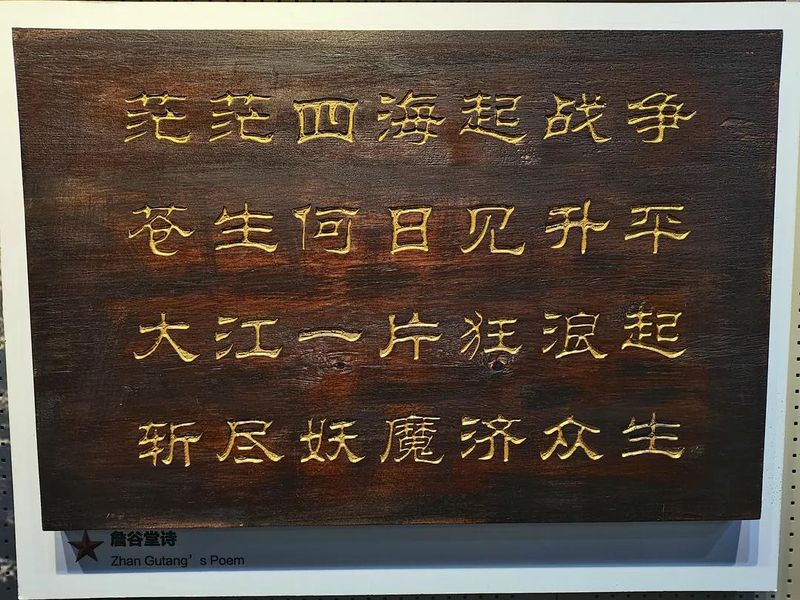 茫茫四海起战争
苍生何日见升平
大江一片狂浪起
斩尽妖魔济众生
詹谷堂诗
Zhan Gutang’s Poem